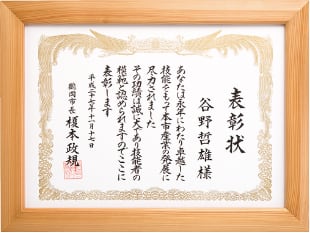 表彰状
谷野哲雄様
あなたは永年にわたり卓越した
技能をもって本市産業の発展に
尽力されました
その功績は誠に大であり技能者の
模範と認められますのでここに
表彰します
平成二十七年十一月十七日
鶴岡市長 榎本政規